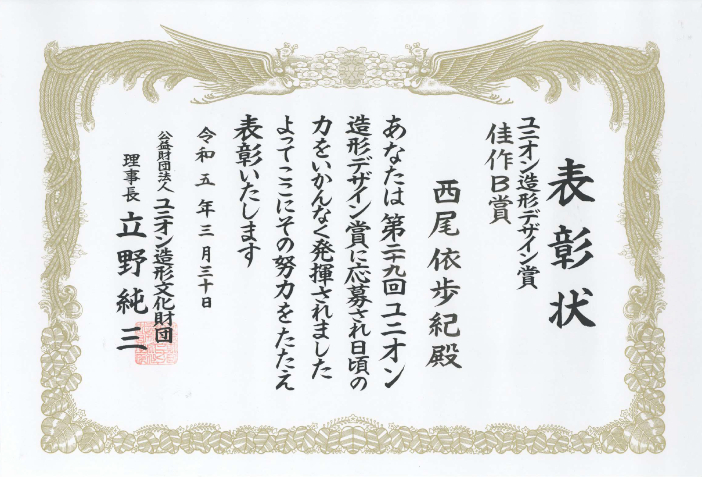 表彰状
ユニオン造形デザイン賞
佳作B賞
西尾依歩紀殿
あなたは第二十九回ユニオン
造形デザイン賞に応募され日頃の
力をいかんなく発揮されました
よってここにその努力をたたえ
表彰いたします
令和五年三月三十日
公益財団法人 ユニオン造形文化財団
理事長 立野純三